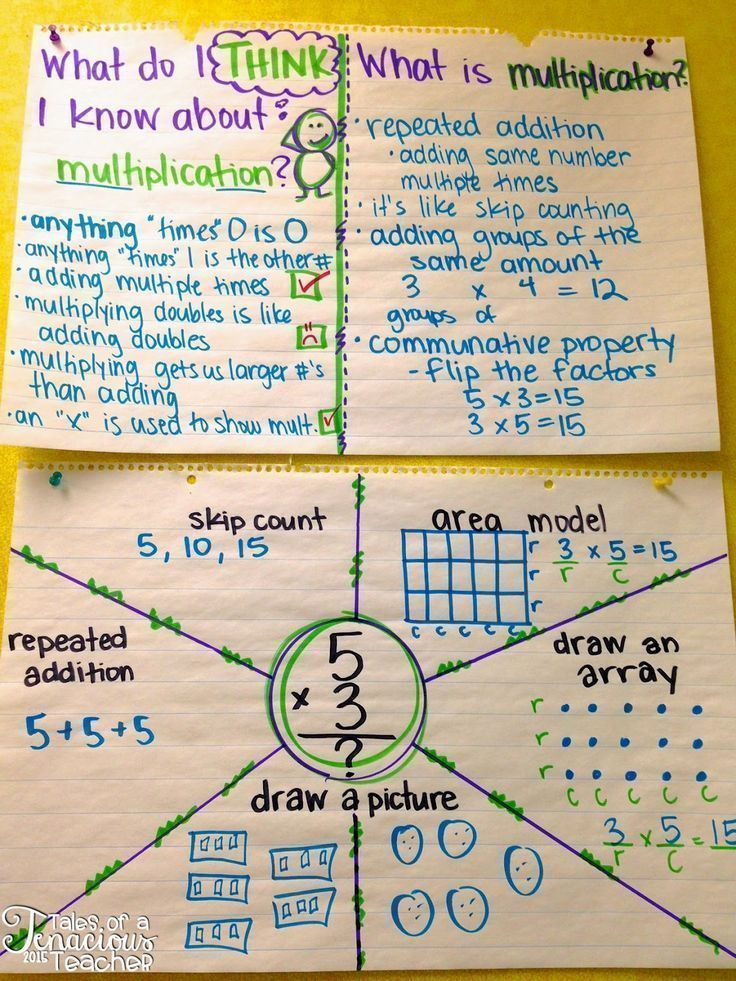 What do I THINK
I know about:
multiplication?
• anything "times" 0 is 0
• anything "times" 1 is the other #
• adding multiple times
• multiplying doubles is like
adding doubles
• multiplying gets us larger #'s
than adding
• an "x" is used to show mult.
What is multiplication?
• repeated addition
• adding same number
multiple times
• it's like skip counting
• adding groups of the
same amount
3 x 4 = 12
groups of
• communative property
- flip the factors
5 x 3 = 15
3 x 5 = 15
skip count
5, 10, 15
area model
r 3 x 5 = 15
r r c
r
c c c c c
repeated
addition
5+5+5
5
x 3
?
draw an
array
r
r
r
c c c c c
3 x 5 = 15
r c
draw a picture
Tales of a
Tenacious
2015 Teacher